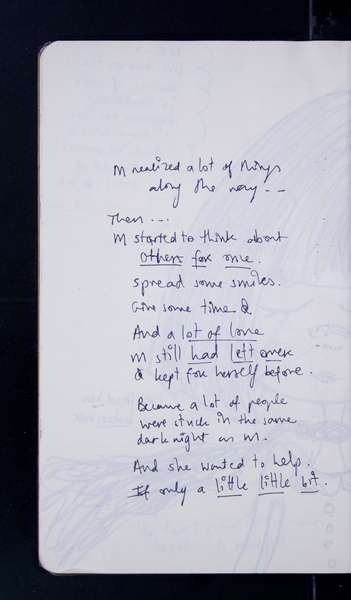 M realized a lot of things
along the way --
Then ...
M started to think about
others for once.
spread some smiles.
Give some time &
And a lot of love
M still had left over
& kept for herself before.
Because a lot of people
were stuck in the same
dark night as M.
And she wanted to help.
If only a little little bit.